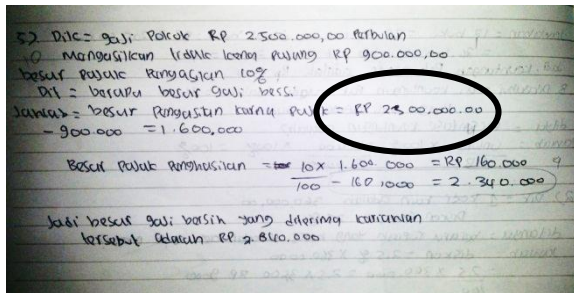 52 Dik = gaji Pokok RP 2.500.000,00 Perbulan
Mengasilkan tidak kena pajang RP 900.000,00
besar pajak Pengasian 10%
Dit = berapa besar gaji bersi
Jawab = besar pengasian karna pajak = RP 2500.000.00
- 900.000 = 1.600,000
Besar pajak Penghasilan = 10 x 1.600 000 = RP. 160.000
100 - 160 1000 = 2.340.000
Jadi besar gaji bersih yang diterima kariawan
tersebut adalah RP 2.840.000